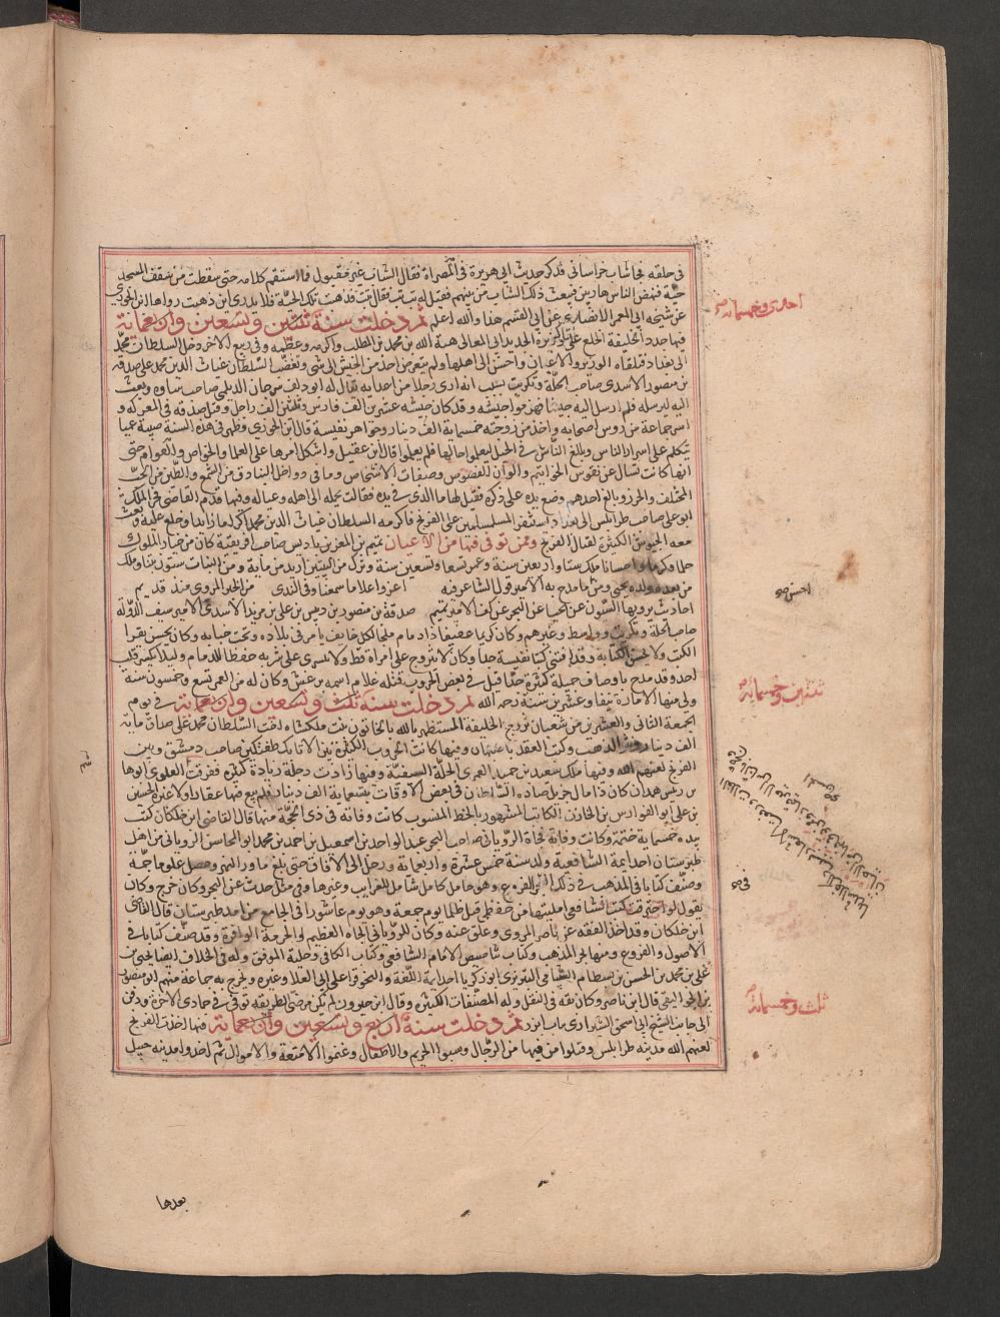 في حلقه فجا شاب خراساني فذكر حديث ابي هريرة في المصراة فقال الشاب غير مقبول فما استتم كلامه حتى سقطت من سقف المسجد
حية فنهض الناس هاربين فتبعت ذلك الشاب من بينهم فقيل له تب تب فقال تبت فذهبت تلك الحية فلا يدرى اين ذهبت رواها ابن الجوزي
عن شيخه ابي المعمر الانصاري عن ابي القسم هذا والله اعلم ثم دخلت سنة ثنتين وتسعين واربعماية
فيها جدد الخليفة الخلع على وزيره الجديد ابي المعالي هبة الله بن محمد بن المطلب واكرمه وعظمه وفي ربيع الاخر دخل السلطان محمد
الى بغداد فتلقاه الوزير والاعيان واحسن الى اهلها ولم يتعرض احد من الجيش الى شي وتغضب السلطان غياث الدين محمد على صدقه
بن منصور الاسدي صاحب الحلة وتكريت بسبب انه اوى رجلا من اعدايه يقال له ابو دلف سرحان الديلمي صاحب ساوه وبعث
اليه ليرسله فلم ارسل اليه جيشا فهزموا جيشه وقد كان جيشه عشرين الف فارس وثلثين الف راجل وقتل صدقه في المعركه و
اسر جماعة من روس اصحابه واخذ من زوجته خمسماية الف دينار وجواهر نفيسة قال ابن الجوزي وظهر في هذه السنة صبية عميا
تتكلم على اسرار الناس وبالغ الناس في الحيل ليعلموا حالها فلم يعلموا قال ابن عقيل واشكل امرها على العلما والخواص والعوام حتى
انها كانت تسال عن نقوش الخواتيم والوان الفصوص وصفات الاشخاص وما في دواخل البنادق من الشمع والطين من الحب
المختلف والخرز وبالغ احدهم وضع يده على ذكره فقيل لها ما الذي في يده فقالت يحمله الى اهله وعياله وفيها قدم القاضي فخر الملك
ابو علي صاحب طرابلس الى بغداد يستنفر المسلمين على الفرنج فاكرمه السلطان غياث الدين محمد اكراما زايدا وخلع عليه وبعث
معه الجيوش الكثيرة لقتال الفرنج وممن توفي فيها من الاعيان تميم بن المعز بن باديس صاحب افريقية كان من خيار الملوك
حلما وكرما واحسانا ملك ستا واربعين سنة وعمر تسعا وتسعين سنة وترك من البنين ازيد من ماية ومن البنات ستون بنتا وملك
من بعده ولده يحيى ومن ما مدح به الامير قول الشاعر فيه اعز واعلا ما سمعنا في الندى من الخبر المروي منذ قديم
احاديث يرويها السيول عن الحيا عن البحر عن كف الامير تميم صدقة بن منصور بن دبيس بن علي بن مزيد الاسدي الامير سيف الدولة
صاحب الحلة وتكريت وواسط وغيرهم وكان كريما عفيفا ذا ذمام ملجا لكل خايف يامن في بلاده وتحت جنابه وكان يحسن يقرا
الكتب ولا يحسن الكتابه وقد اقتنى كتبا نفيسة جدا وكان لا يتزوج على امراة قط ولا يتسرى على سريه حفظا للذمام وليلا يكسر قلب
احد وقد مدح باوصاف جميلة كثيرة جدا قتل في بعض الحروب قتله غلام اسمه برغش وكان له من العمر تسع وخمسون سنة
ولي منها الامارة نيفا وعشرين سنة رحمه الله ثم دخلت سنة ثلث وتسعين واربعماية في يوم
الجمعة الثاني والعشرين من شعبان تزوج الخليفة المستظهر بالله بالخاتون بنت ملكشاه اخت السلطان محمد على صداق ماية
الف دينار ونثر الذهب وكتب العقد باصبهان وفيها كانت الحروب الكثيرة بين الاتابك طغتكين صاحب دمشق وبين
الفرنج لعنهم الله وفيها ملك سعيد بن حميد العمري الحلة السيفية وفيها زادت دجلة زيادة كثيرة فغرقت العلوي ابو هاشم
بن رييس همدان كان ذا مال جزيل صادره السلطان في بعض الاوقات بتسعماية الف دينار فلم يبع فيها عقارا ولا غيره الحسين
بن علي ابو الفوارس بن الخازن الكاتب المشهور بالخط المنسوب كانت وفاته في ذي الحجة منها قال القاضي ابن خلكان كتب
بيده خمسماية ختمة وكانت وفاته فجاة الروياني صاحب البحر عبد الواحد بن اسمعيل بن احمد بن محمد ابو المحاسن الروياني من اهل
طبرستان احد ايمة الشافعية ولد سنة خمس عشرة واربعماية ورحل الى الافاق حتى بلغ ما ورا النهر وحصل علوما جمة
وصنف كتابا في المذهب في ذلك البحر في الفروع وهو حافل كامل شامل للغرايب وغيرها وفي مثل حدث عن البحر وكان خرج وكان
يقول لو احترقت كتب الشافعي امليتها من حفظي قتل ظلما يوم جمعة وهو يوم عاشورا في الجامع من امد طبرستان قال القاضي
ابن خلكان وقد اخذ الفقه عن ناصر المروي وعلق عنه وكان للروياني الجاه العظيم والحرمة الوافرة وقد صنف كتابا في
الاصول والفروع ومنها بحر المذهب وكتاب مناصيص الامام الشافعي وكتاب الكافي وحلية الموفق وله في الخلاف ايضا يحيى بن
علي بن محمد بن الحسن بن بسطام الشيباني التبريزي ابو زكريا احد ايمة اللغة والنحو قرا على ابي العلا وغيره وتخرج به جماعة منهم ابو منصور
بن الجواليقي قال ابن ناصر وكان ثقه في النقل وله المصنفات الكثيره وقال ابن خيرون لم يكن مرضي الطريقه توفي في جمادى الاخرة ودفن
الى جانب الشيخ ابي اسحق الشيرازي بباب ابرز ثم دخلت سنة اربع وتسعين واربعماية فيها اخذت الفرنج
لعنهم الله مدينه طرابلس وقتلوا من فيها من الرجال وسبوا الحريم والاطفال وغنموا الامتعة والاموال ثم اخذوا مدينه جبيل
بعدها
احدى وخمسماية
احسن صح
ثنتين وخمسماية
ثلث وخمسماية